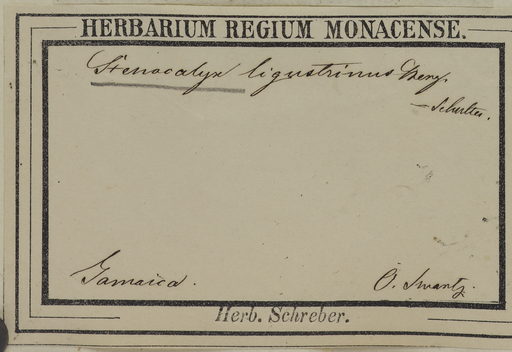 HERBARIUM REGIUM MONACENSE.
Stenocalyx ligustrinus Berg.
— Schultes.
Jamaica.
O. Swartz.
Herb. Schreber.